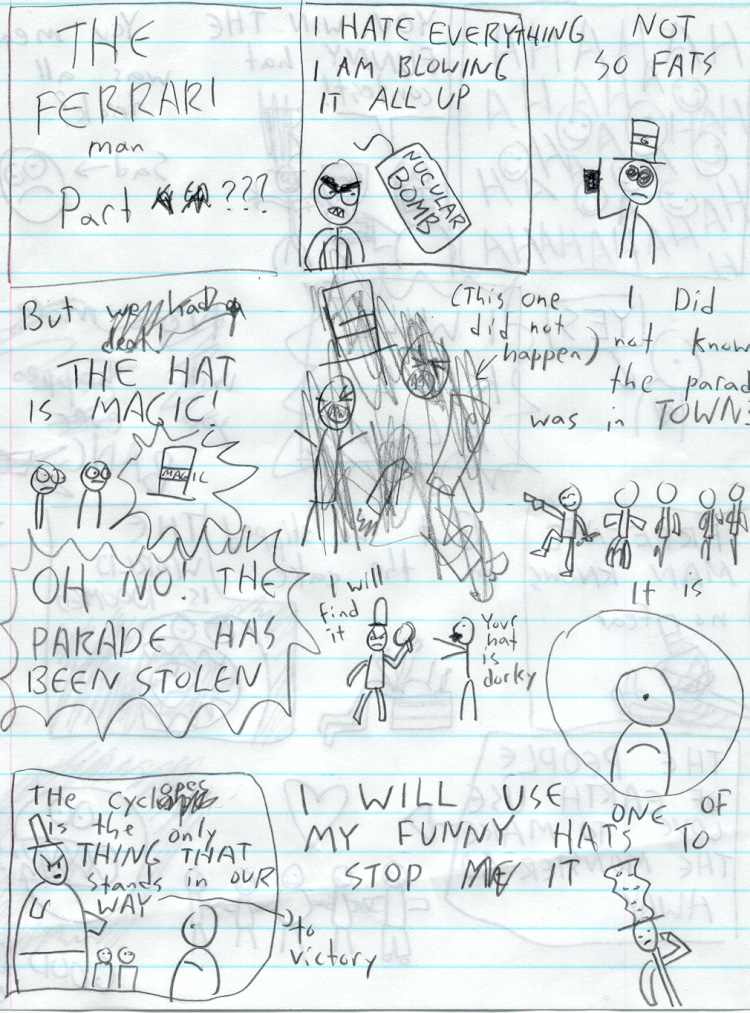 THE
FERRARI
man
Part ???
I HATE EVERYTHING
I AM BLOWING
IT ALL UP
NUCULAR
BOMB
NOT
SO FATS
G
But we had a
deal!
THE HAT
IS MAGIC!
MAGIC
(This one
did not
happen)
I Did
not know
the parad
was in TOWN!
OH NO! THE
PARADE HAS
BEEN STOLEN
I will
find
it
Your
hat
is
dorky
It is
THE cyclopes
is the only
THING THAT
stands in OUR
WAY
to
victory
I WILL USE ONE OF
MY FUNNY HATS TO
STOP IT